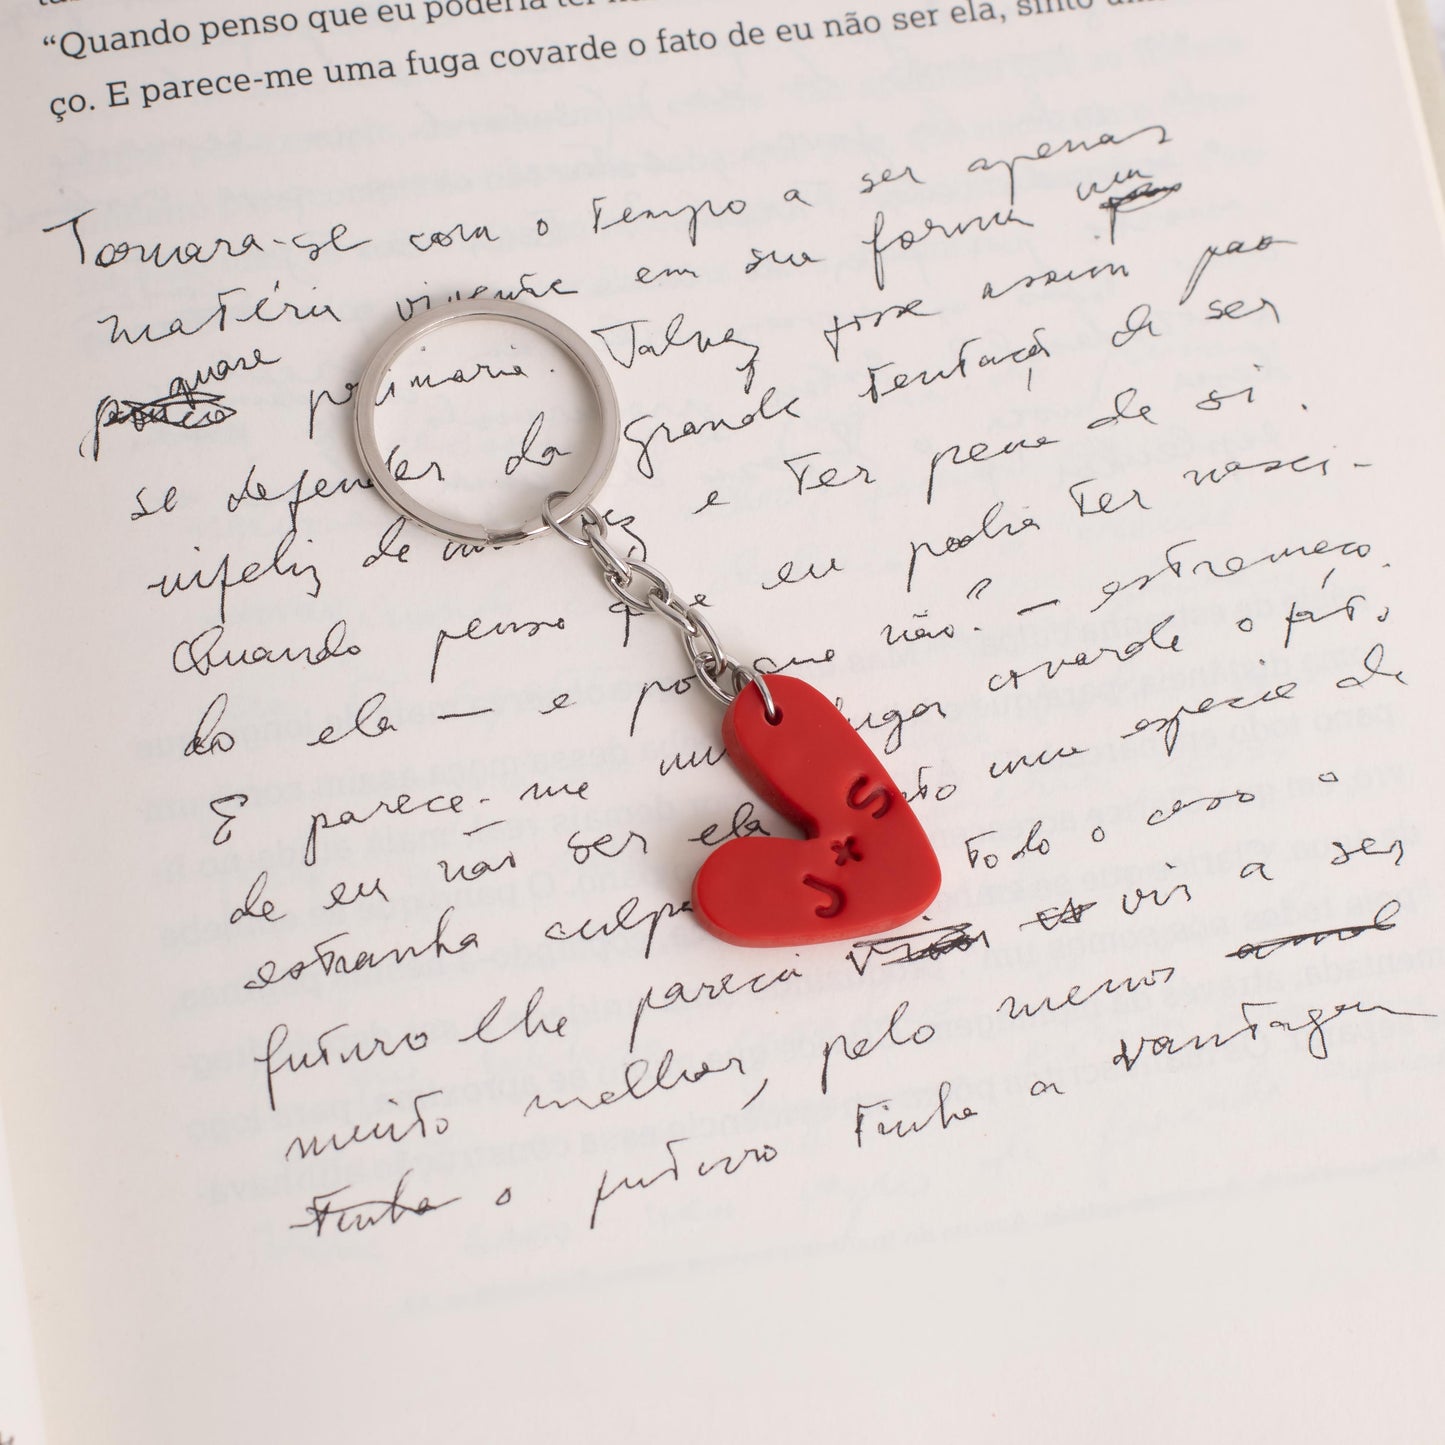 “Quando penso que eu poderia ter
ço. E parece-me uma fuga covarde o fato de eu não ser ela, sinto
Tornara-se com o tempo a ser apenas
matéria vivente em sua forma um
quase primaria. Talvez fosse assim para
se defender da grande tentação de ser
infeliz de uma vez e ter pena de si.
Quando penso que eu podia ter nasci-
do ela — e por que não? — estremeço.
E parece-me uma fuga covarde o fato
de eu não ser ela, sinto uma espécie de
estranha culpa. Todo o caso o
futuro lhe parecia vir a ser
muito melhor, pelo menos
tinha o futuro tinha a vantagem
J x S